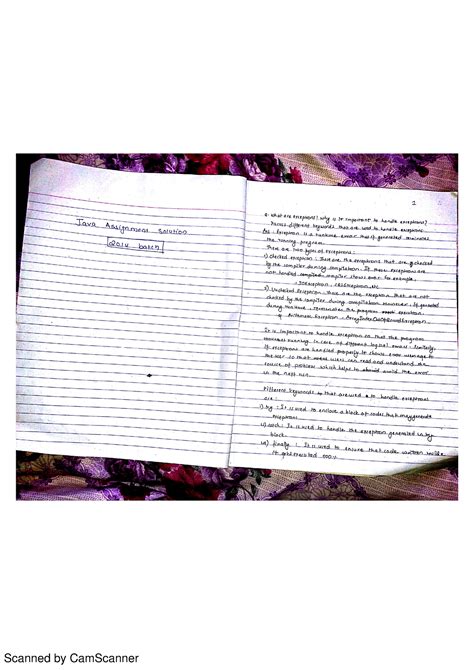 Java Assignment Solution
2014 batch
2
Q. What are exceptions? Why is it important to handle exceptions?
Discuss different keywords that are used to handle exception.
Ans: Exception is a runtime error that if generated terminates
the running program.
There are two types of exceptions:
i) Checked exception: These are the exceptions that are checked
by the compiler during compilation. If these exceptions are
not handled compiler shows error. For example,
IOException, SQLException, etc.
ii) Unchecked Exception: These are the exception that are not
checked by the compiler during compilation. However, if generated
during runtime, terminates the program execution.
Arithmetic Exception, ArrayIndexOutOfBoundException.
It is important to handle exception so that the program
running. In case of different logical errors. Similarly,
if exceptions are handled properly to shows error message to
the user so that users can read and understand the
source of problem which helps to avoid the error
in the next run.
Different keywords that are used to handle exceptions
are:
i) try: It is used to enclose a block of codes that may generate
exceptions.
ii) catch: It is used to handle the exception generated in try
block.
iii) finally: It is used to ensure that code written inside
it gets executed 100%.
Scanned by CamScanner